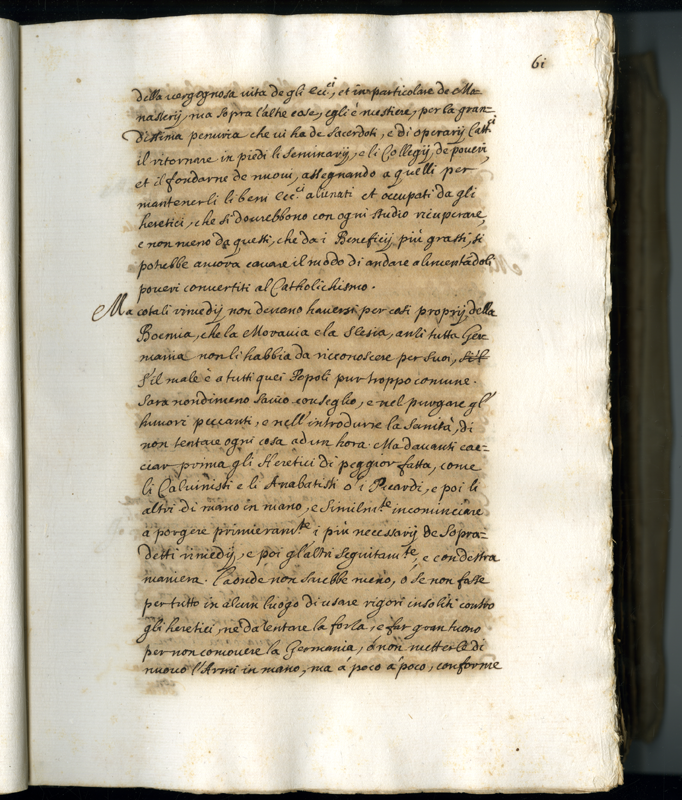 61
della vergognosa vita de gli Ecc.ci, et in particolare de Mo-
nasterij, ma sopra l'altre cose, egli è mestiere, per la gran-
dissima penuria che vi ha de Sacerdoti, e di operarij Catt.ci
il ritornare in piedi li Seminarij, e li Collegij, de poveri,
et il fondarne de nuovi, assegnando a quelli per
mantenerli li beni Ecc.ci alienati et occupati da gli
heretici, che si dovrebbono con ogni studio ricuperare,
e non meno da questi, che da i Beneficij più grassi, si
potrebbe ancora cavare il modo di andare alimentādoli
poveri convertiti al Catholichismo.
Ma cotali rimedij non devano haversi per casi proprij della
Boemia, che la Moravia e la Slesia, anzi tutta Ger
mania non li habbia da riconoscere per suoi,
s'il male è a tutti quei Popoli pur troppo comune.
Sara nondimeno savio conseglio, e nel purgare gl'
humori peccanti, e nell'introdurre la sanità, di
non tentare ogni cosa ad un hora. Ma davanti cac-
ciar prima gli Heretici di peggior fatta, come
li Calvinisti e li Anabatisti o i Picardi, e poi li
altri di mano in mano, e similm.te incominciare
a porgere primieram.te i più necessarij de sopra-
detti rimedij, e poi gl'altri seguitam.te, e con destra
maniera. Laonde non sarebbe meno, ò se non fasse
per tutto in alcun luogo di usare rigori insoliti contro
gli heretici, ne da tentare la forza, e far gran tuono
per non comovere la Germania, ò non metterle di
nuovo l'Armi in mano, ma à poco à poco, conforme